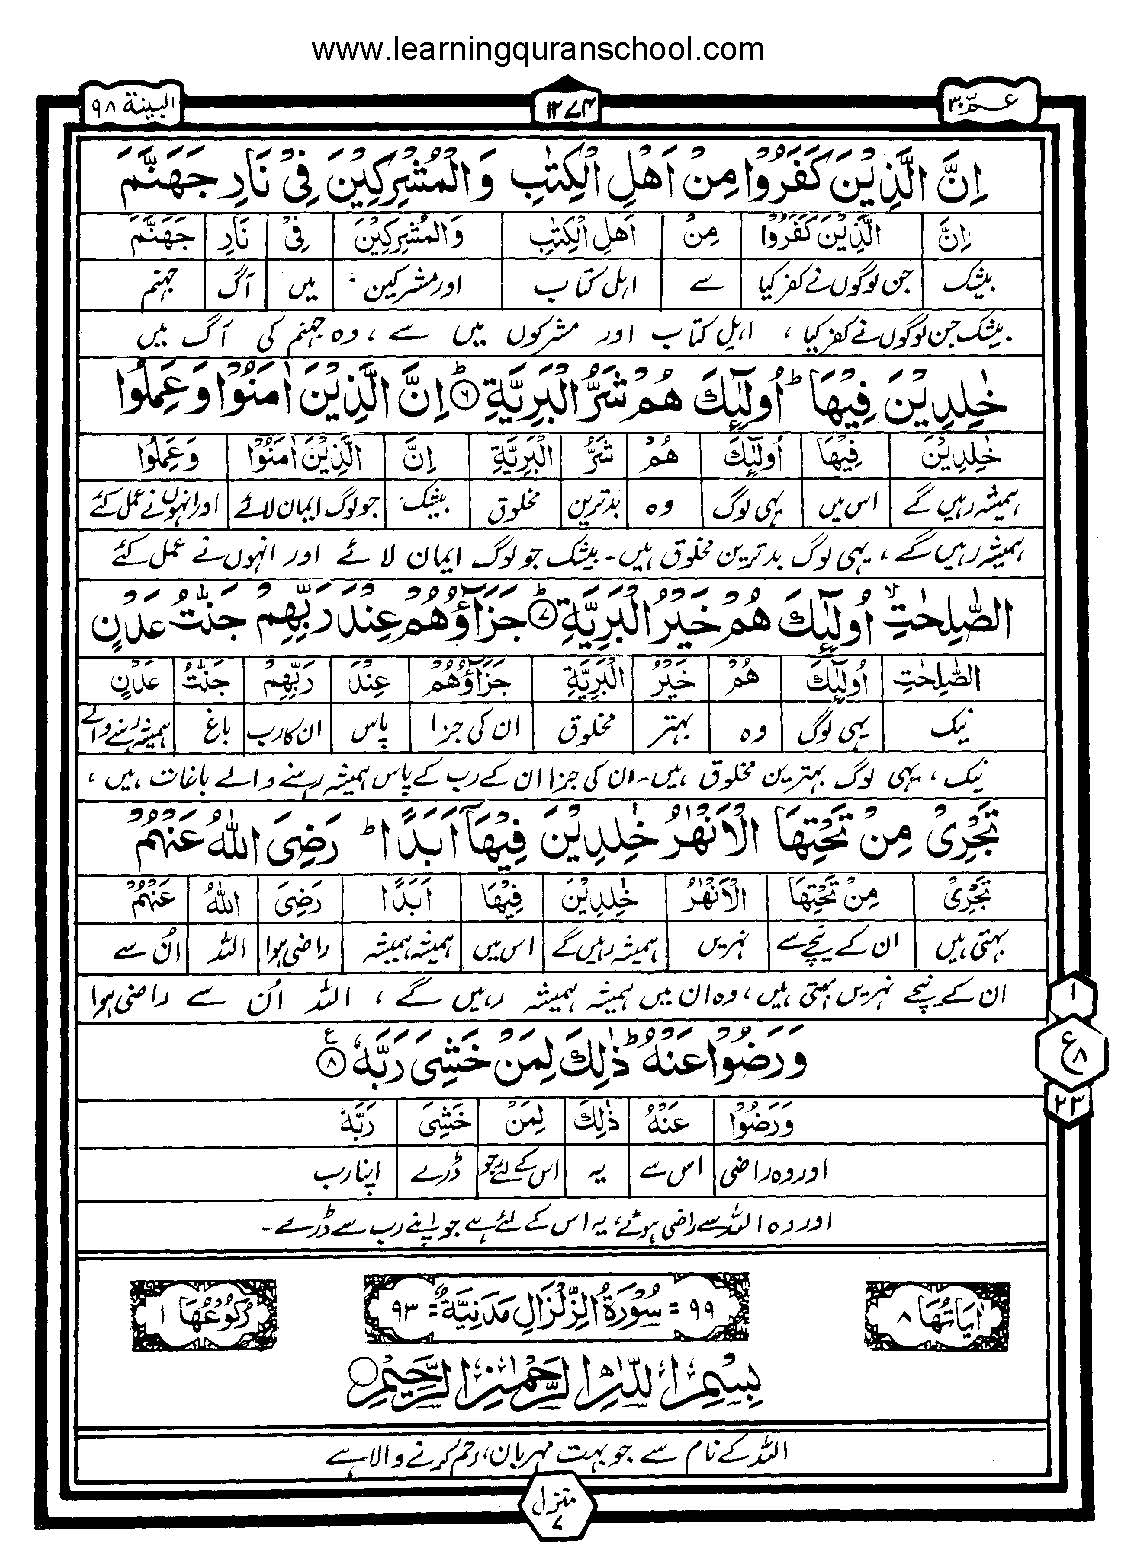 www.learningquranschool.com
عمّ ٣٠ ١٢٧٤ البينة ٩٨
اِنَّ الَّذِيْنَ كَفَرُوْا مِنْ اَهْلِ الْكِتٰبِ وَالْمُشْرِكِيْنَ فِيْ نَارِ جَهَنَّمَ
اِنَّ الَّذِيْنَ كَفَرُوْا مِنْ اَهْلِ الْكِتٰبِ وَالْمُشْرِكِيْنَ فِيْ نَارِ جَهَنَّمَ
بیشک جن لوگوں نے کفر کیا سے اہل کتاب اور مشرکین میں آگ جہنم
بیشک جن لوگوں نے کفر کیا، اہلِ کتاب اور مشرکوں میں سے، وہ جہنم کی آگ میں
خٰلِدِيْنَ فِيْهَا ؕ اُولٰٓئِكَ هُمْ شَرُّ الْبَرِيَّةِ ؕ ۶ اِنَّ الَّذِيْنَ اٰمَنُوْا وَعَمِلُوا
خٰلِدِيْنَ فِيْهَا اُولٰٓئِكَ هُمْ شَرُّ الْبَرِيَّةِ اِنَّ الَّذِيْنَ اٰمَنُوْا وَعَمِلُوا
ہمیشہ رہیں گے اس میں یہی لوگ وہ بدترین مخلوق بیشک جو لوگ ایمان لائے اور انہوں نے عمل کئے
ہمیشہ رہیں گے، یہی لوگ بدترین مخلوق ہیں۔ بیشک جو لوگ ایمان لائے اور انہوں نے عمل کئے
الصّٰلِحٰتِ ۙ اُولٰٓئِكَ هُمْ خَيْرُ الْبَرِيَّةِ ؕ ۷ جَزَآؤُهُمْ عِنْدَ رَبِّهِمْ جَنّٰتُ عَدْنٍ
الصّٰلِحٰتِ اُولٰٓئِكَ هُمْ خَيْرُ الْبَرِيَّةِ جَزَآؤُهُمْ عِنْدَ رَبِّهِمْ جَنّٰتُ عَدْنٍ
نیک یہی لوگ وہ بہتر مخلوق ان کی جزا پاس ان کا رب باغ ہمیشہ رہنے والے
نیک، یہی لوگ بہترین مخلوق ہیں۔ ان کی جزا ان کے رب کے پاس ہمیشہ رہنے والے باغات ہیں،
تَجْرِيْ مِنْ تَحْتِهَا الْاَنْهٰرُ خٰلِدِيْنَ فِيْهَاۤ اَبَدًا ؕ رَضِيَ اللّٰهُ عَنْهُمْ
تَجْرِيْ مِنْ تَحْتِهَا الْاَنْهٰرُ خٰلِدِيْنَ فِيْهَا اَبَدًا رَضِيَ اللّٰهُ عَنْهُمْ
بہتی ہیں ان کے نیچے سے نہریں ہمیشہ رہیں گے اس میں ہمیشہ ہمیشہ راضی ہوا اللہ اُن سے
ان کے نیچے نہریں بہتی ہیں، وہ ان میں ہمیشہ ہمیشہ رہیں گے، اللہ اُن سے راضی ہوا
۱
وَرَضُوْا عَنْهُ ؕ ذٰلِكَ لِمَنْ خَشِيَ رَبَّهٗ ۸ ع
ع ۸
۲۳
وَرَضُوْا عَنْهُ ذٰلِكَ لِمَنْ خَشِيَ رَبَّهٗ
اور وہ راضی اس سے یہ اس کے لئے جو ڈرے اپنا رب
اور وہ اللہ سے راضی ہوئے، یہ اس کے لئے ہے جو اپنے رب سے ڈرے۔
اٰيَاتُهَا ۸ ۹۹ = سُوْرَةُ الزِّلْزَالِ مَدَنِيَّةٌ = ۹۳ رُكُوْعُهَا ۱
بِسْمِ اللّٰهِ الرَّحْمٰنِ الرَّحِيْمِ
اللہ کے نام سے جو بہت مہربان، رحم کرنے والا ہے
منزل ۷